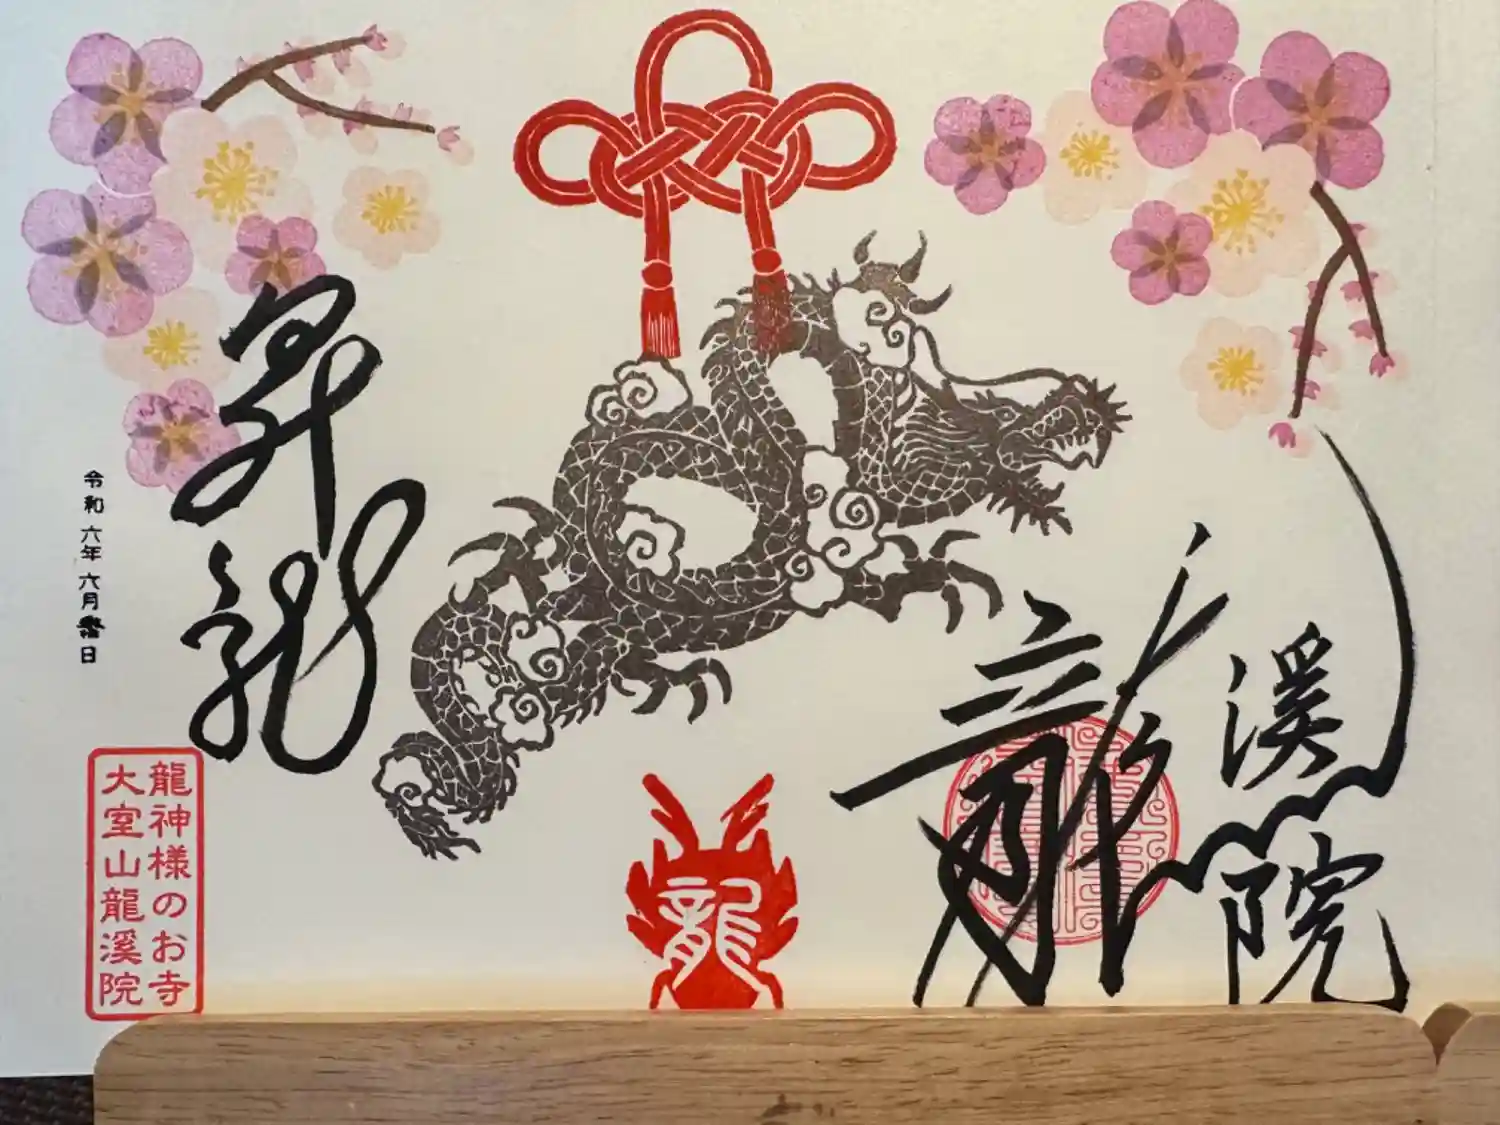 龍
溪
院
龍
昇龍
令和六年六月吉日
龍神様のお寺
大室山龍溪院